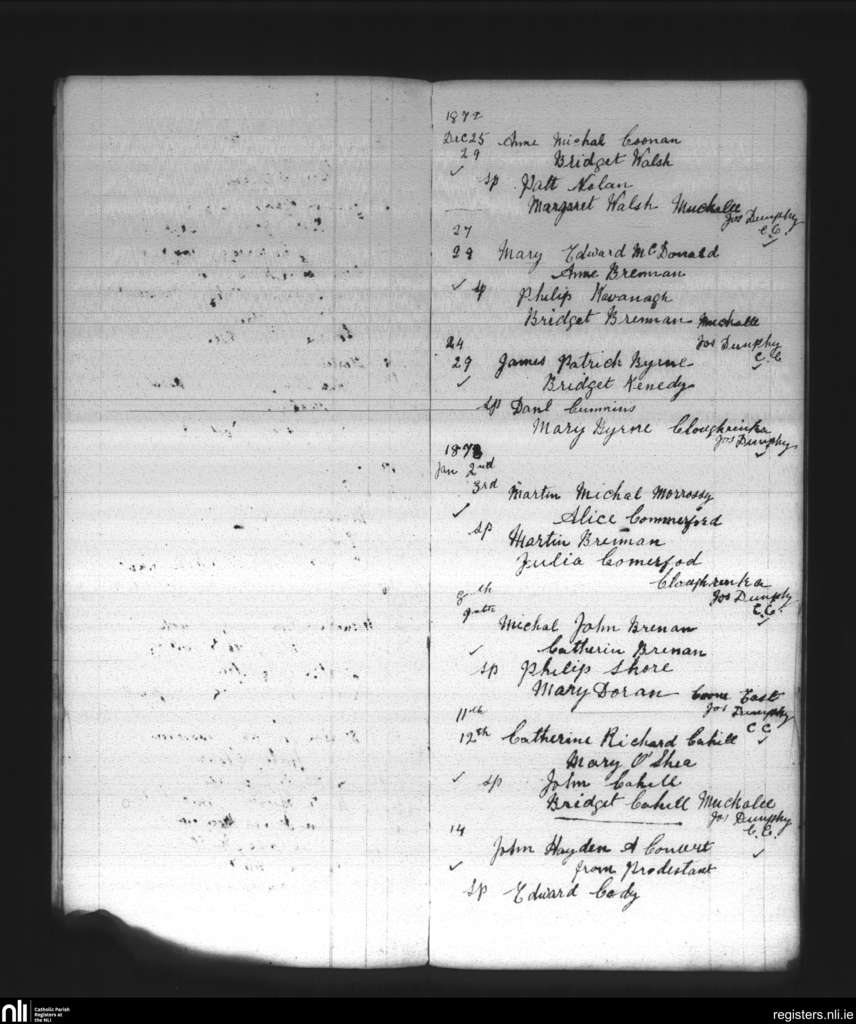 1872
Dec 25 Anne Michal Coonan
29 Bridget Walsh
✓ Sp Patt Nolan
Margaret Walsh Muckalee
Jos Dunphy
C.C.
✓
27
29 Mary Edward McDonald
Anne Brennan
✓ Sp Philip Kavanagh
Bridget Brennan Muckalee
Jos Dunphy
C.C
✓
24
29 James Patrick Byrne
✓ Bridget Kenedy
Sp Danl Cummins
Mary Byrne Cloughrinka
Jos Dunphy
✓
1873
Jan 2nd
3rd Martin Michal Morrossy
✓ Alice Commerford
Sp Martin Brennan
Julia Comerfod
Cloughrinka
Jos Dunphy
C.C.
✓
8th
9th Michal John Brenan
✓ Catherin Brenan
Sp Philip Shore
Mary Doran Coone East
Jos Dunphy
C C
✓
11th
12th Catherine Richard Cahill
Mary O'Shea
✓ Sp John Cahill
Bridget Cahill Muckalee
Jos Dunphy
C.C.
✓
14
John Hayden A Convert
✓ from Prodestant
Sp Edward Cody
nli Catholic Parish
Registers at
the NLI
registers.nli.ie